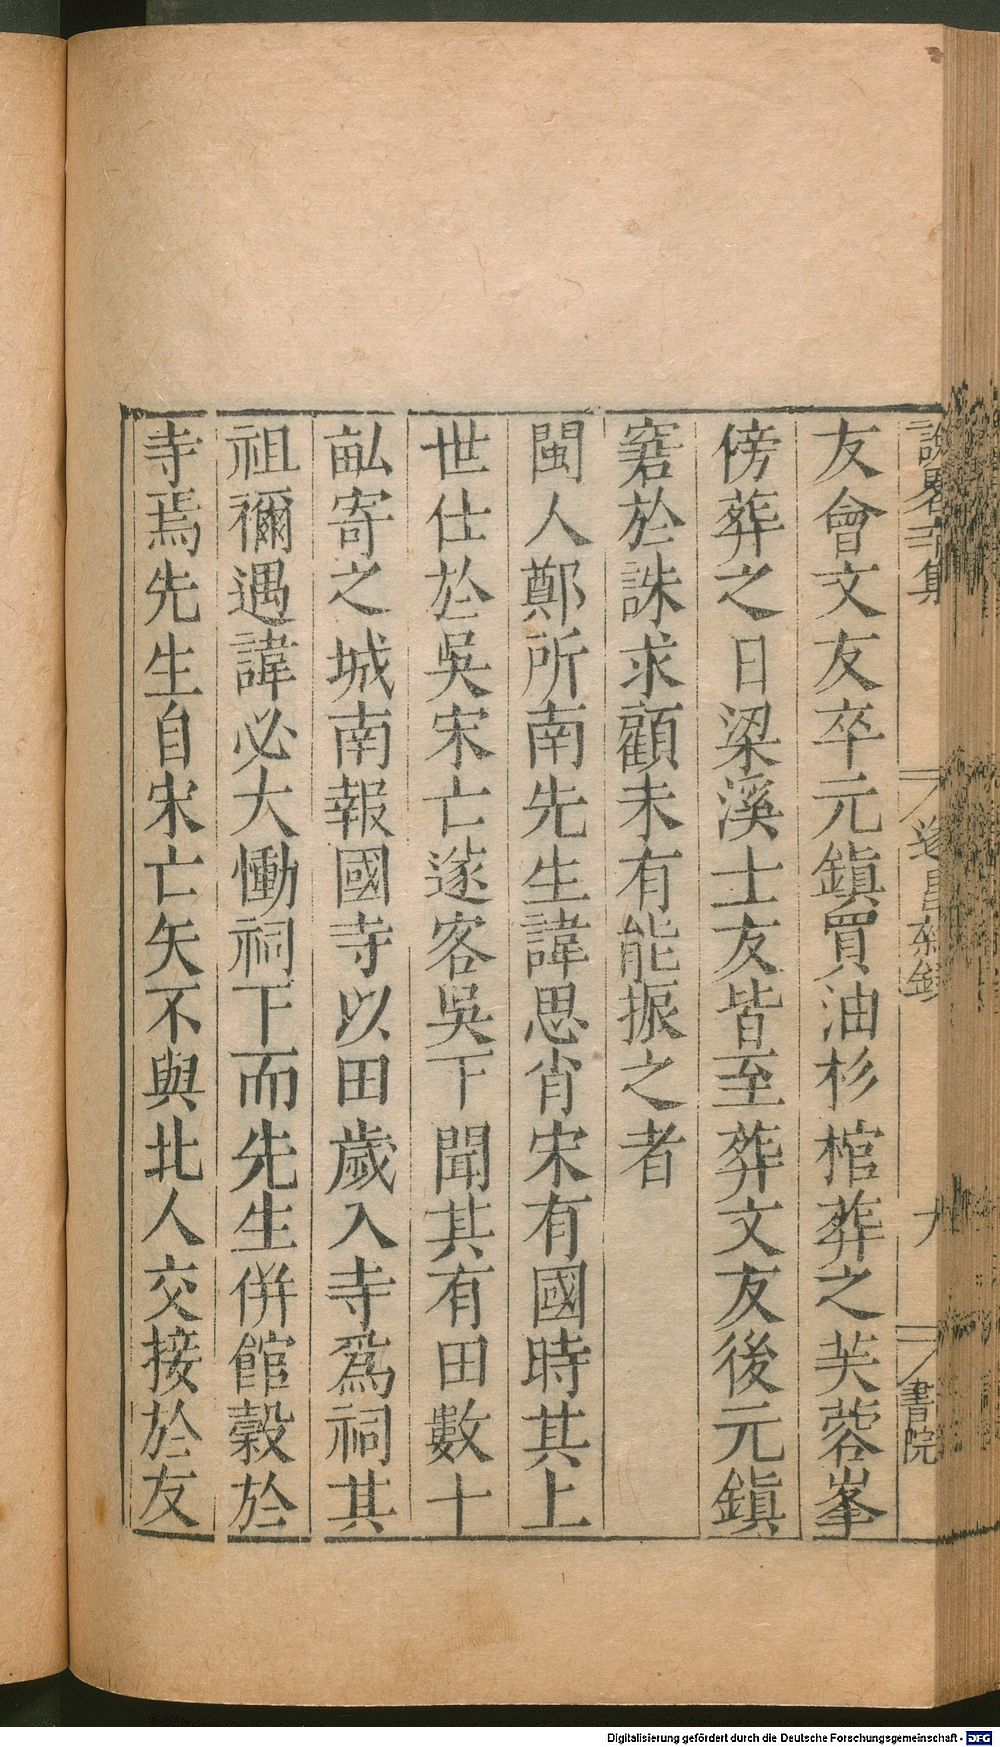 友會文友卒元鎮買油杉棺葬之芙蓉峯
傍葬之日梁溪士友皆至葬文友後元鎮
窘於誅求顧未有能振之者
閩人鄭所南先生諱思肖宋有國時其上
世仕於吳宋亡遂客吳下聞其有田數十
畝寄之城南報國寺以田歲入寺爲祠其
祖禰遇諱必大慟祠下而先生併館穀於
寺焉先生自宋亡矢不與北人交接於友
書院
Digitalisierung gefördert durch die Deutsche Forschungsgemeinschaft - DFG